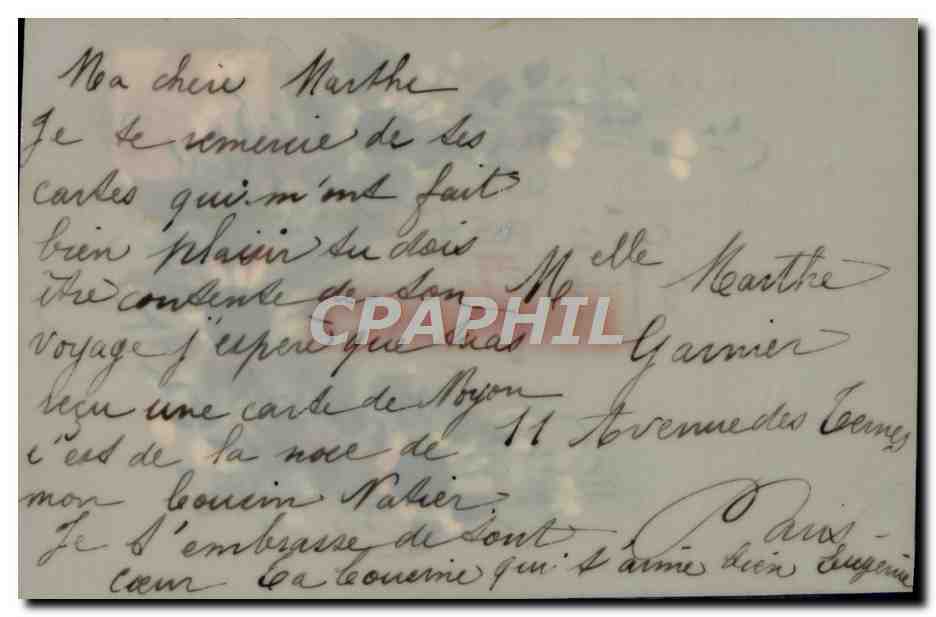 Ma chère Marthe
Je te remercie de tes
cartes qui m'ont fait
bien plaisir tu dois
être contente de ton
voyage j'espère que tu as
reçu une carte de Noyon
c'est de la noce de
mon Cousin Natier.
Je t'embrasse de tout
cœur Ta Cousine qui t'aime bien Eugénie
Melle Marthe
Garnier
11 Avenue des Ternes
Paris
CPAPHIL